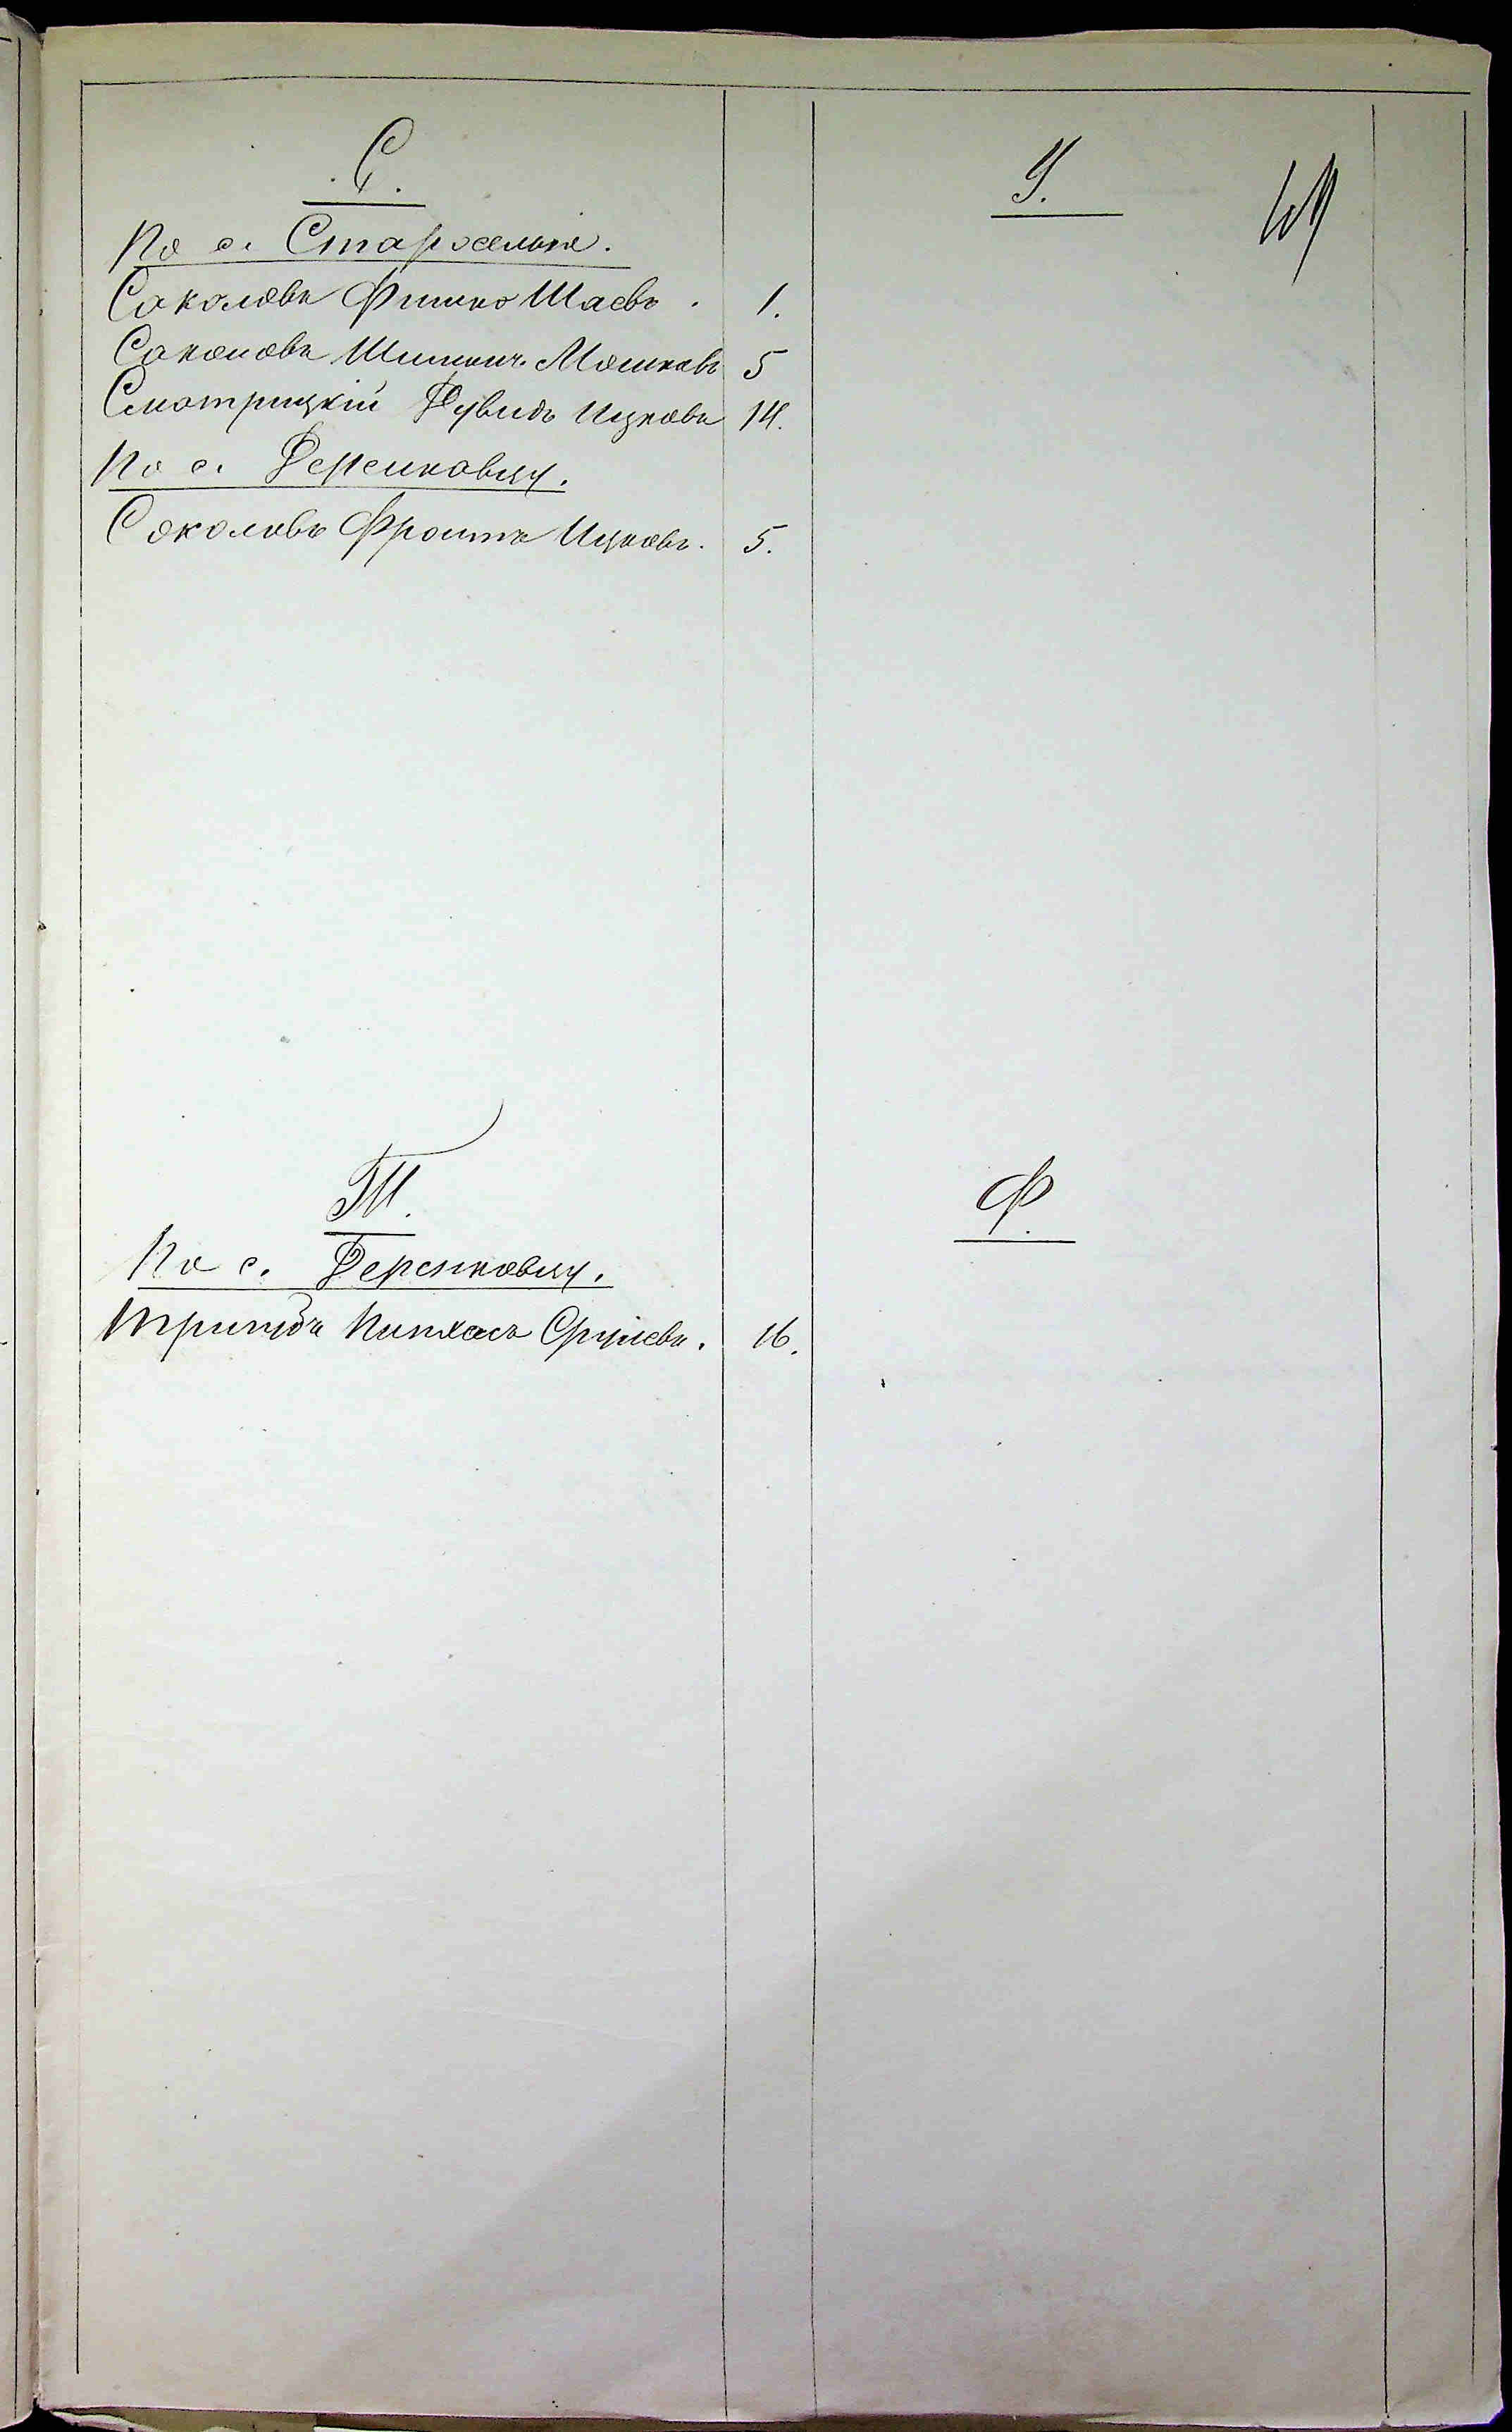 С.
По с. Староселье.
Соколовъ Фишко Шаевъ. 1.
Соколовъ Мошковъ 5
Смотрицкій Дувидъ Ицковъ 14.
По с. Деренковцу.
Соколовъ Фроимъ Ицковъ. 5.
Т.
По с. Деренковцу.
Пинхасъ Срулевъ. 16.
У.
Ф.